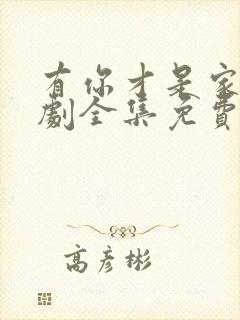 有你才是家
劇全集免費
高彦彬